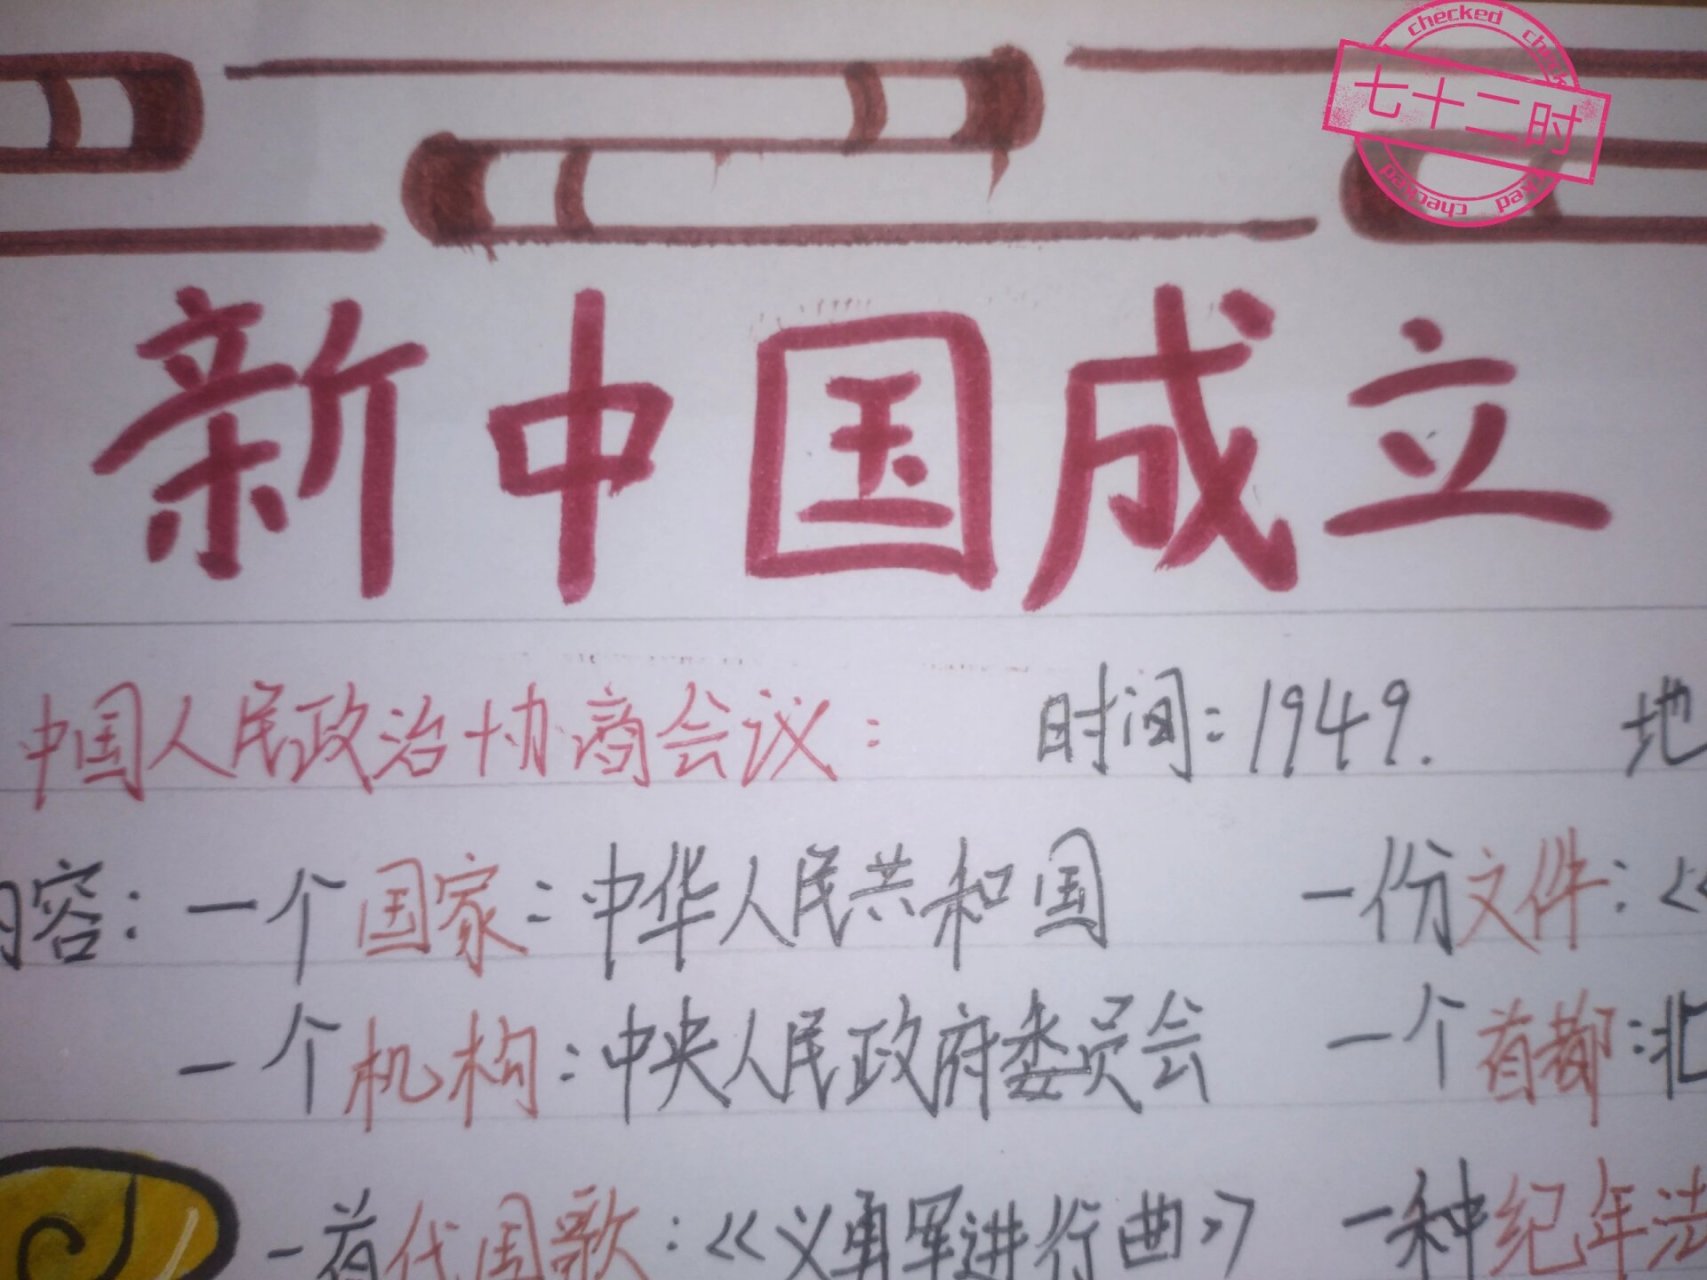 checked
七十二时
checked
新中国成立
中国人民政治协商会议: 时间:1949. 地
内容:一个国家:中华人民共和国 一份文件:《
一个机构:中央人民政府委员会 一个首都:北
一首代国歌:《义勇军进行曲》 一种纪年法